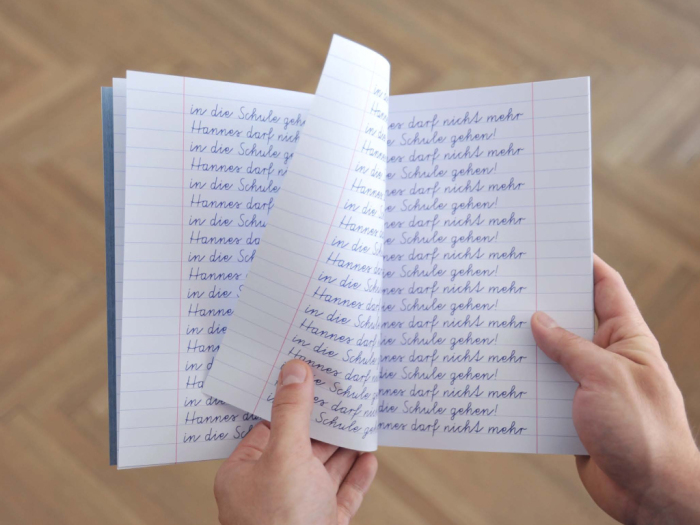 in die Schule gehe
Hannes darf nich
in die Schule geh
Hannes darf n
in die Schule
Hannes darf
in die Schul
Hannes da
in die Schu
Hannes
in die Sch
Hanne
in die
Hann
in d
Ha
in di
Hannes
in die Sc
in
Hann
in die
Hannes
in die
Hannes
in die
Hannes
in die S
Hannes da
in die Sch
Hannes dar
in die Schul
Hannes darf
in die Schule
Hannes darf n
Schule ge
darf nich
Schule ge
nes darf nicht mehr
e Schule gehen!
nes darf nicht mehr
e Schule gehen!
nes darf nicht mehr
e Schule gehen!
nes darf nicht mehr
e Schule gehen!
nes darf nicht mehr
ie Schule gehen!
nes darf nicht mehr
die Schule gehen!
nnes darf nicht mehr
die Schule gehen!
nnes darf nicht mehr
die Schule gehen!
nnes darf nicht mehr
die Schule gehen!
nnes darf nicht mehr